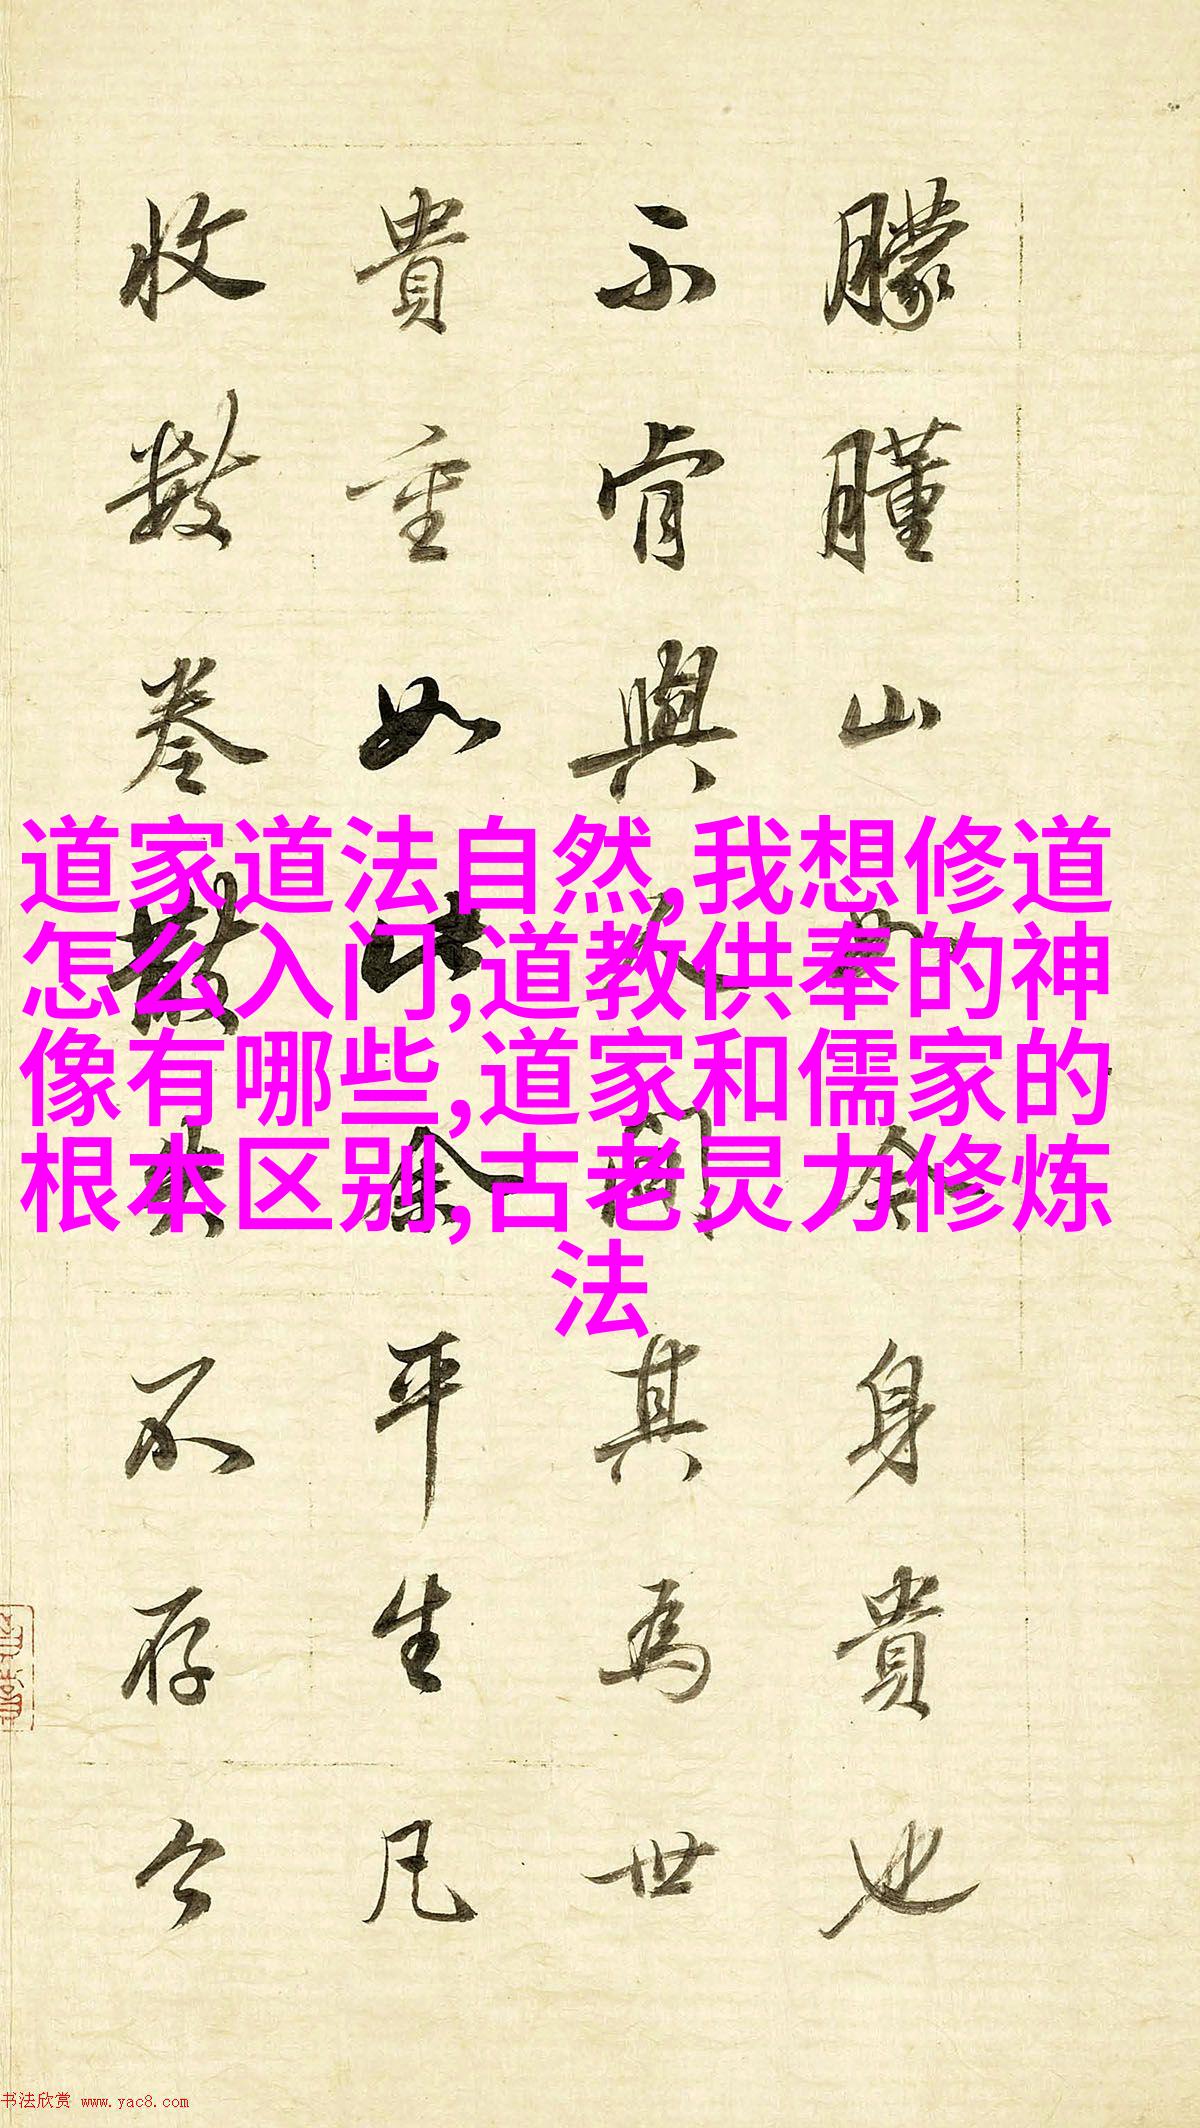 朦朣山
身貴也
不肯與
其為世
貴重如
平生凡
收數卷
散失不存今
道家道法自然,我想修道
怎么入门,道教供奉的神
像有哪些,道家和儒家的
根本区别,古老灵力修炼
法
书法欣赏 www.yac8.com